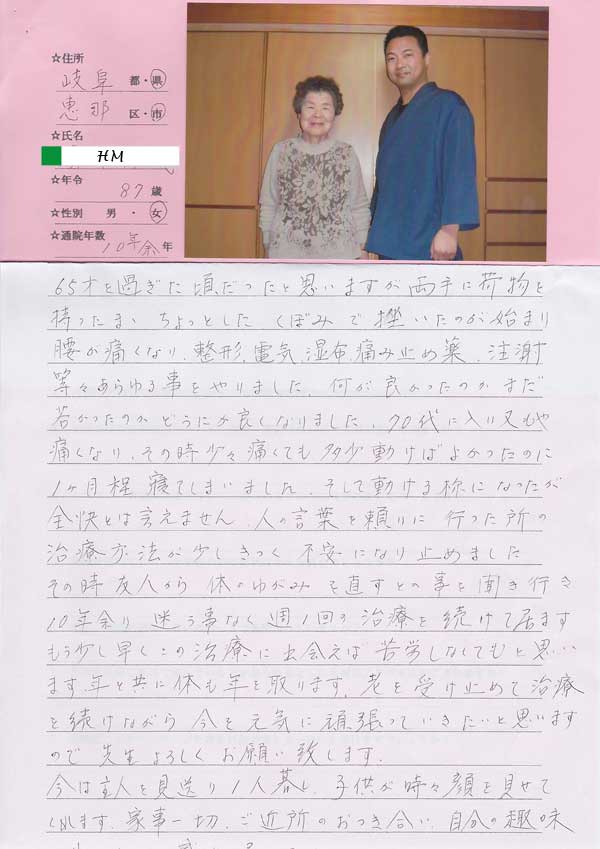 ☆住所
岐阜 都・県
恵那 区・市
☆氏名
HM
☆年令
87歳
☆性別 男・女
☆通院年数
10年余年
65才を過ぎた頃だったと思いますが両手に荷物を
持ったまゝちょっとしたくぼみで挫いたのが始まり
腰が痛くなり、整形、電気、湿布、痛み止め薬、注謝
等々あらゆる事をやりました、何が良かったのかまだ
若かったのかどうにか良くなりました、70代に入り又もや
痛くなり、その時少々痛くても多少動けばよかったのに
1ヶ月程寝てしまいました、そして動ける様になったが
全快とは言えません、人の言葉を頼りに行った所の
治療方法が少しきつく不安になり止めました
その時友人から体のゆがみを直すとの事を聞き行き
10年余り迷う事なく週1回の治療を続けて居ます
もう少し早くこの治療に出会えば苦労しなくてもと思い
ます、年と共に体も年を取ります、老を受け止めて治療
を続けながら今を元気に頑張っていきたいと思います
ので先生よろしくお願い致します、
今は主人を見送り1人暮し、子供が時々顔を見せて
くれます、家事一切、ご近所のおつき合い、自分の趣味